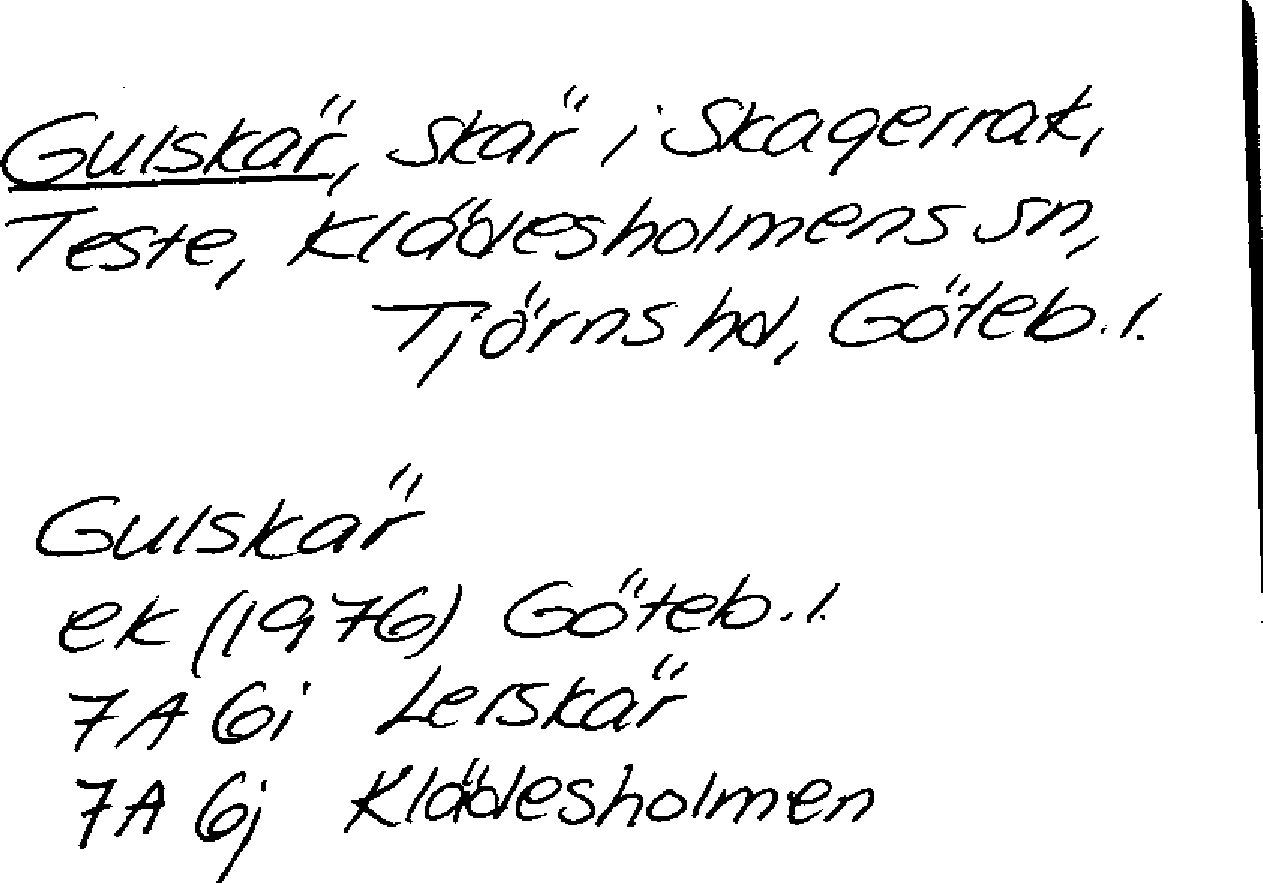 Gulskär, skär i Skagerrak,
Teste, Klädesholmens sn,
Tjörns hd, Göteb. l.
Gulskär
ek (1976) Göteb. l.
7A 6i Lerskär
7A 6j Klädesholmen